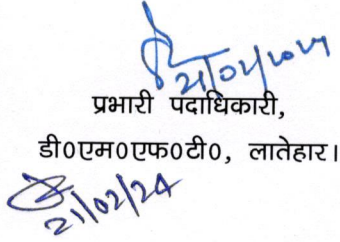 21/02/2024
प्रभारी पदाधिकारी,
डी०एम०एफ०टी०, लातेहार।
21/02/24